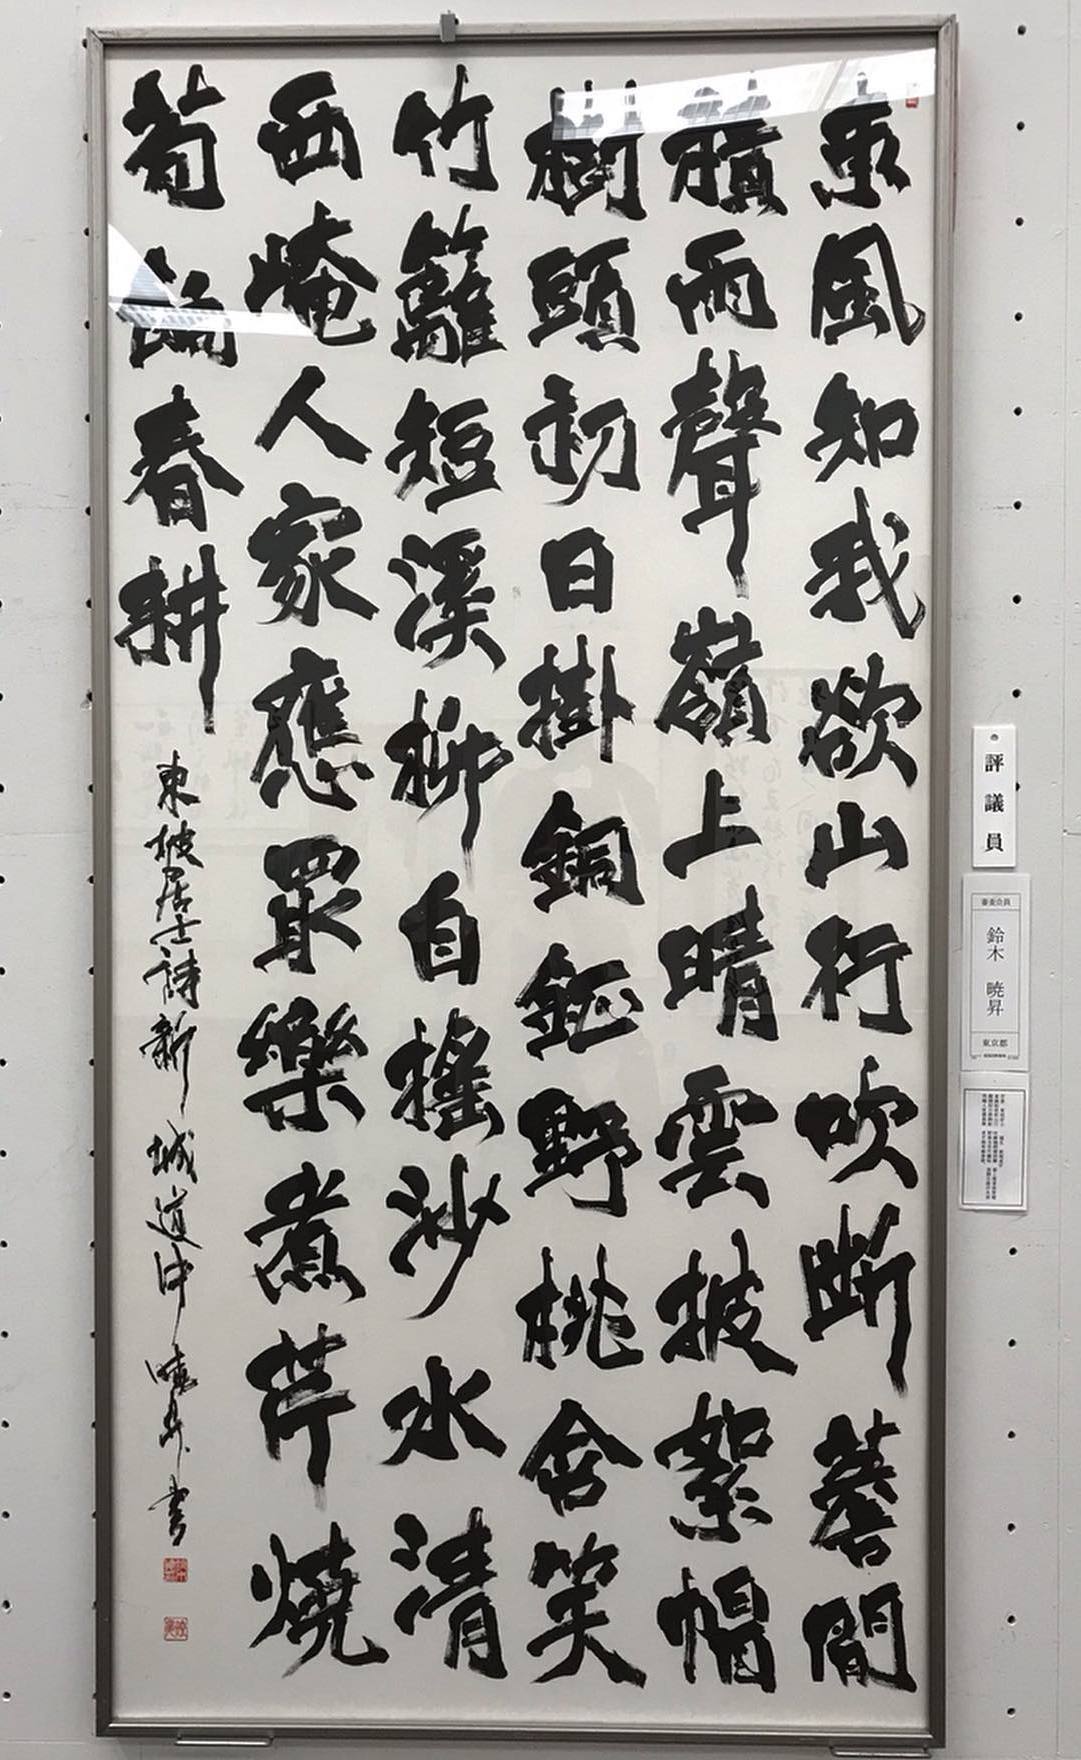 東風知我欲山行吹斷簷間
積雨聲嶺上晴雲披絮帽
樹頭初日掛銅鉦野桃含笑
竹籬短溪柳自搖沙水清
西崦人家應最樂煮芹燒
筍餉春耕
東坡居士詩新城道中 暁昇書
評議員
審査会員
鈴木 暁昇
東京都